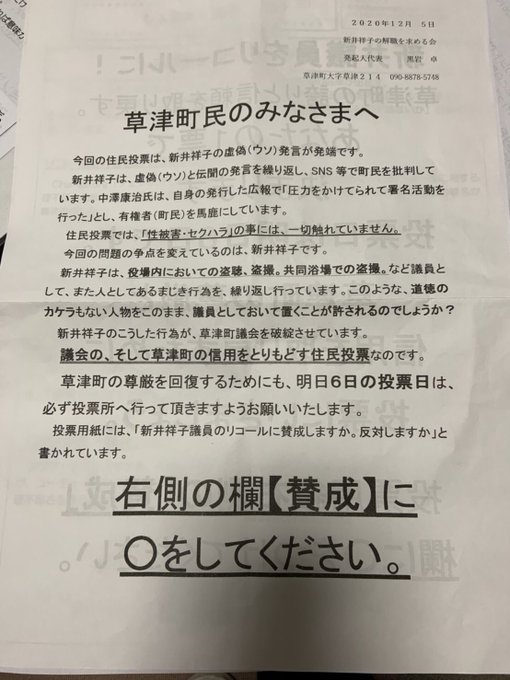 2020年12月 5日
新井祥子の解職を求める会
発起人代表 黒岩 卓
草津町大字草津214 090-8878-5748
草津町民のみなさまへ
今回の住民投票は、新井祥子の虚偽(ウソ)発言が発端です。
新井祥子は、虚偽(ウソ)と伝聞の発言を繰り返し、SNS 等で町民を批判して
います。中澤康治氏は、自身の発行した広報で「圧力をかけてられて署名活動を
行った」とし、有権者(町民)を馬鹿にしています。
住民投票では、「性被害・セクハラ」の事には、一切触れていません。
今回の問題の争点を変えているのは、新井祥子です。
新井祥子は、役場内においての盗聴、盗撮。共同浴場での盗撮。など議員と
して、また人としてあるまじき行為を、繰り返し行っています。このような、道徳の
カケラもない人物をこのまま、議員としておいて置くことが許されるのでしょうか?
新井祥子のこうした行為が、草津町議会を破綻させています。
議会の、そして草津町の信用をとりもどす住民投票なのです。
草津町の尊厳を回復するためにも、明日6日の投票日は、
必ず投票所へ行って頂きますようお願いいたします。
投票用紙には、「新井祥子議員のリコールに賛成しますか。反対しますか」と
書かれています。
右側の欄【賛成】に
〇をしてください。